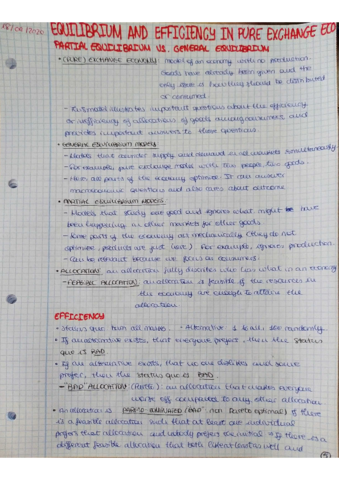 EQUILIBRIUM AND EFFICIENCY IN PURE EXCHANGE ECO
PARTIAL EQUILIBRIUM VS. GENERAL EQUILIBRIUM
• (PURE) EXCHANGE ECONOMY: model of an economy with no production.
Goods have already been given and the
only issue is how they should be distributed
or consumed.
- It illustrates important questions about the efficiency
or inefficiency of allocations of goods among consumers, and
provides important answers to these questions.
• GENERAL EQUILIBRIUM MODELS
- Models that consider supply and demand in all markets simultaneously
- For example, pure exchange model with two people, two goods.
- Here all parts of the economy optimize. It can answer
macroeconomic questions and also cares about outcome.
• PARTIAL EQUILIBRIUM MODELS
- Models that study one good and ignores what might have
been happening in other markets for other goods.
- Some parts of the economy act mechanically (they do not
optimize, products are just here). For example, ignores production.
- Can be relevant because we focus on consumers.
• ALLOCATION: an allocation fully describes who has what in an economy
- FEASIBLE ALLOCATION: an allocation is feasible if the resources in
the economy are enough to attain the
allocation.
EFFICIENCY
- Status quo: both all move. - Alternative
• If an alternative exists, that everyone prefers, then the status
quo is BAD.
• If an alternative exists, that no one dislikes and some
prefer, then the status quo is BAD.
- "BAD" ALLOCATION (Pareto): an allocation that makes everyone
worse off compared to any other allocation
• An allocation is PARETO-DOMINATED ("BAD", non Pareto optimal) if there
is a feasible allocation such that at least one individual
prefers that allocation and nobody prefers the initial. → If there is a
different feasible allocation that both
5